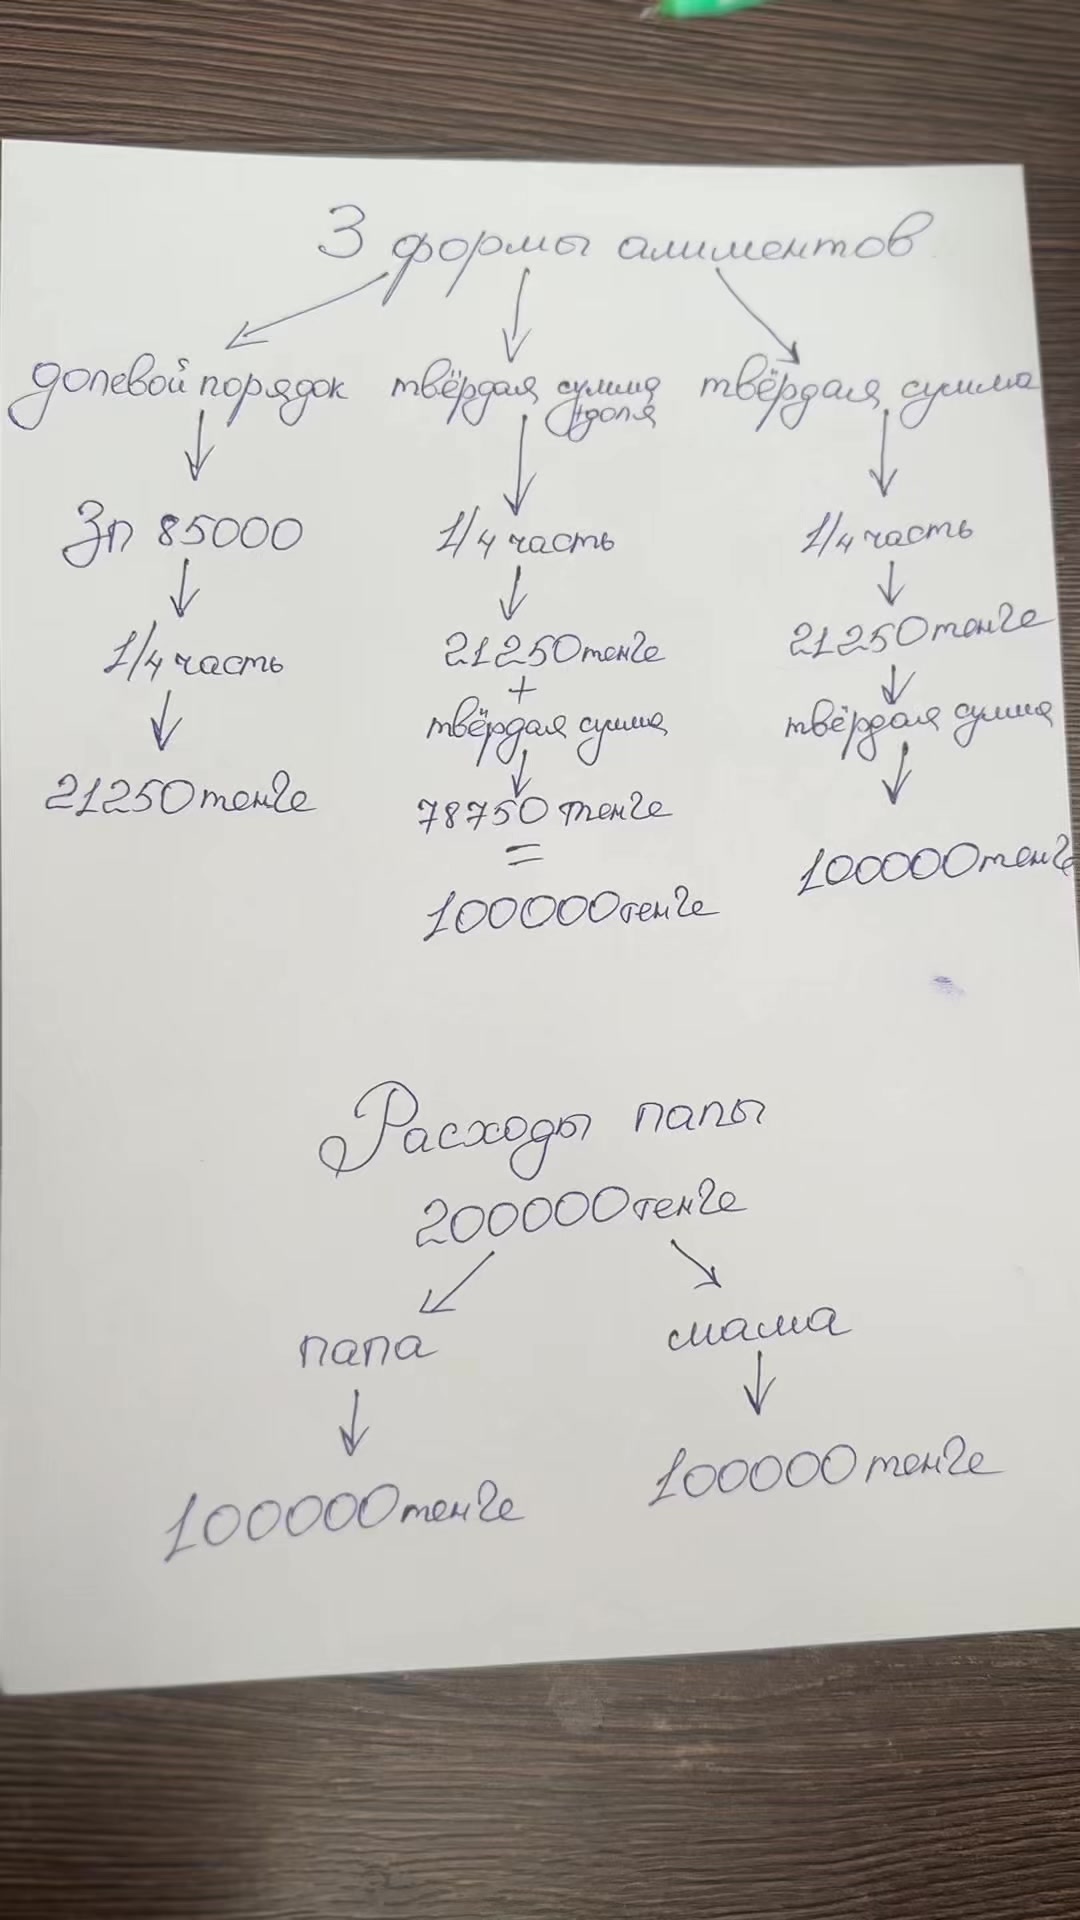 3 формы алиментов
долевой порядок
Зп 85000
1/4 часть
21250 тенге
твёрдая сумма
+доля
1/4 часть
21250 тенге
+
твёрдая сумма
78750 тенге
=
100000 тенге
твёрдая сумма
1/4 часть
21250 тенге
твёрдая сумма
100000 тенге
Расходы папы
200000 тенге
папа
100000 тенге
мама
100000 тенге